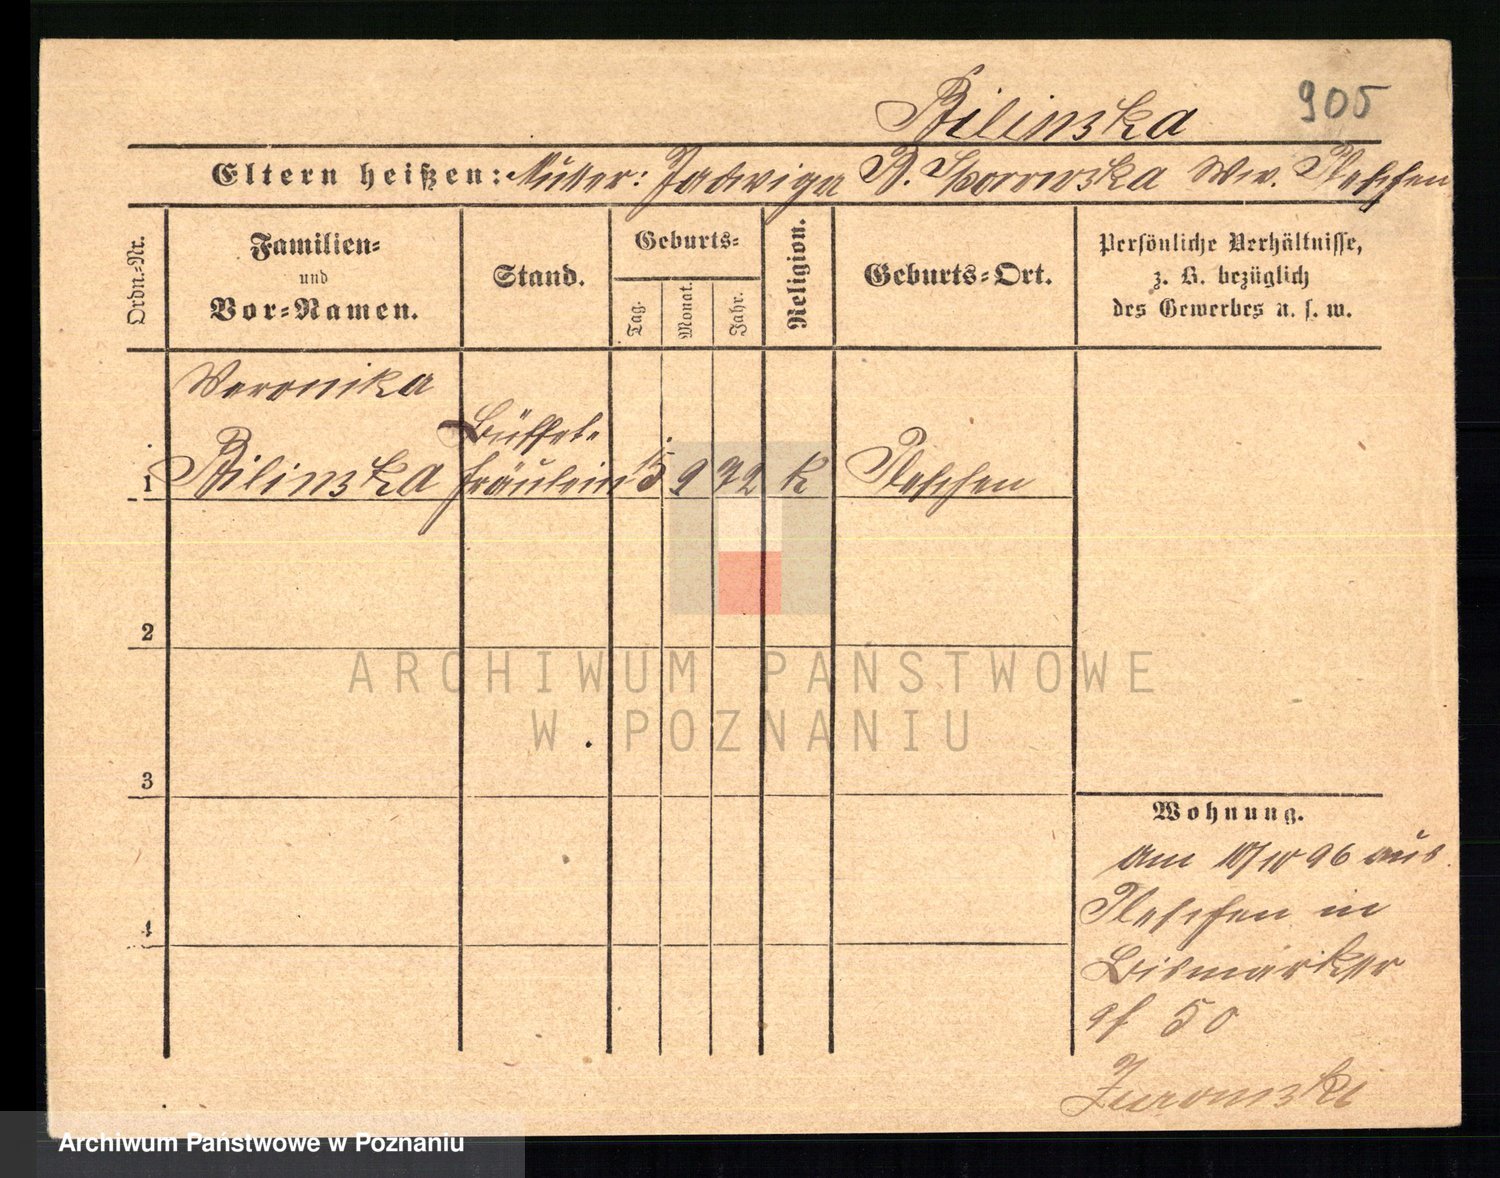 905
Bilinska
Eltern heißen: Mutter: Jadwiga B. Ww. Pleschen
Ordn.-Nr.
Familien-
und
Vor-Namen.
Stand.
Geburts-
Tag.
Monat.
Jahr.
Religion.
Geburts-Ort.
Persönliche Verhältnisse,
z. B. bezüglich
des Gewerbes u. s. w.
Weronika
Büffet-
1 Bilinska fräulein 15 9 72 k Pleschen
2
3
4
ARCHIWUM PAŃSTWOWE
W POZNANIU
Wohnung.
am 10/10 96 aus
Pleschen in
Bismarckstr
50
Zuromski
Archiwum Państwowe w Poznaniu